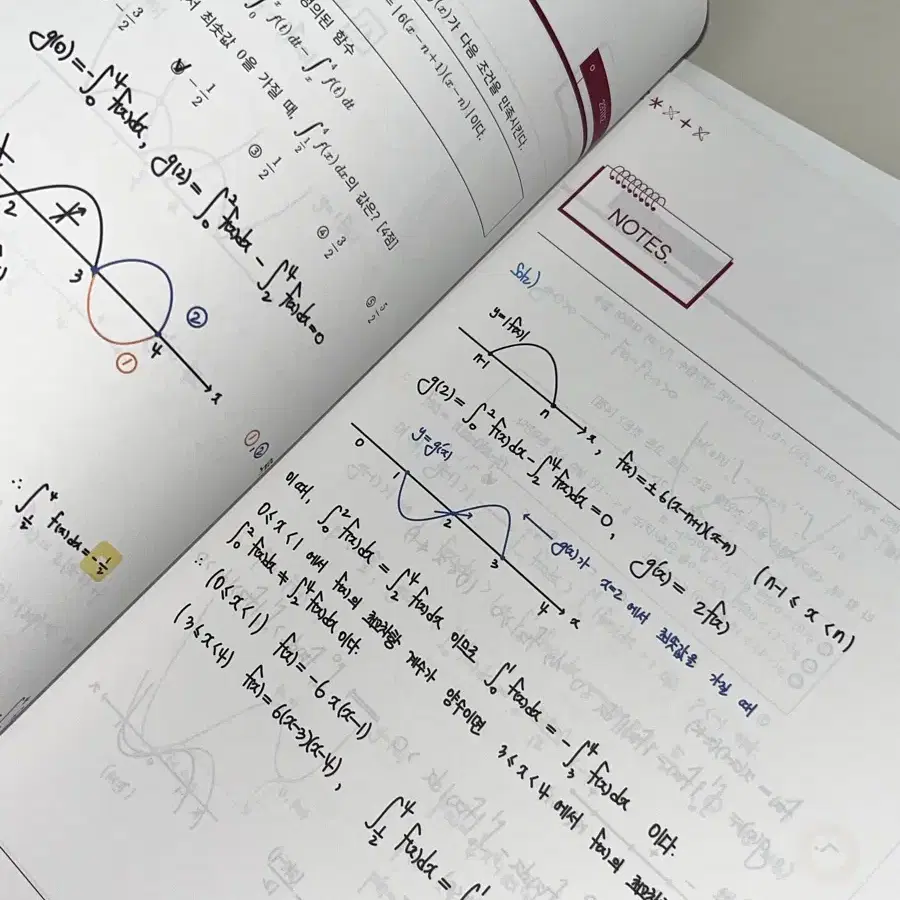 (x)가 다음 조건을 만족시킨다.
=|6(x-n+1)(x-n)|이다.
정의된 함수
∫₀ˣ f(t)dt-∫ₓ⁴ f(t)dt
서 최솟값 0을 가질 때, ∫_{1/2}^4 f(x)dx의 값은? [4점]
-1/2
③ 1/2
④ 3/2
⑤ 5/2
g(0)=-∫₀⁴f(x)dx, g(2)=∫₀²f(x)dx-∫₂⁴f(x)dx=0
2
3
4
x
①
②
①,②
∴ ∫_{1/2}^4 f(x)dx=-1/2
NOTES.
sol2)
y=|f(x)|
n-1
n
x, f(x)=±6(x-n+1)(x-n) (n-1≤x<n)
g(2)=∫₀²f(x)dx-∫₂⁴f(x)dx=0, g'(x)=2f(x)
y=g'(x)
0
1
2
3
4
x
g(x)가 x=2에서 최솟값을 가질 때
이때, ∫₀²f(x)dx=∫₂⁴f(x)dx 이므로 ∫₀¹f(x)dx=-∫₃⁴f(x)dx 이다.
0≤x<1 에서 f(x)의 최고차항 계수가 양수이면 3≤x<4 에서 f(x)의 최고차
∫₀²f(x)dx≠∫₂⁴f(x)dx 이다.
∴ (0≤x<1) f(x)=-6x(x-1)
(3≤x<4) f(x)=6(x-3)(x-4),
∫_{1/2}^4 f(x)dx=